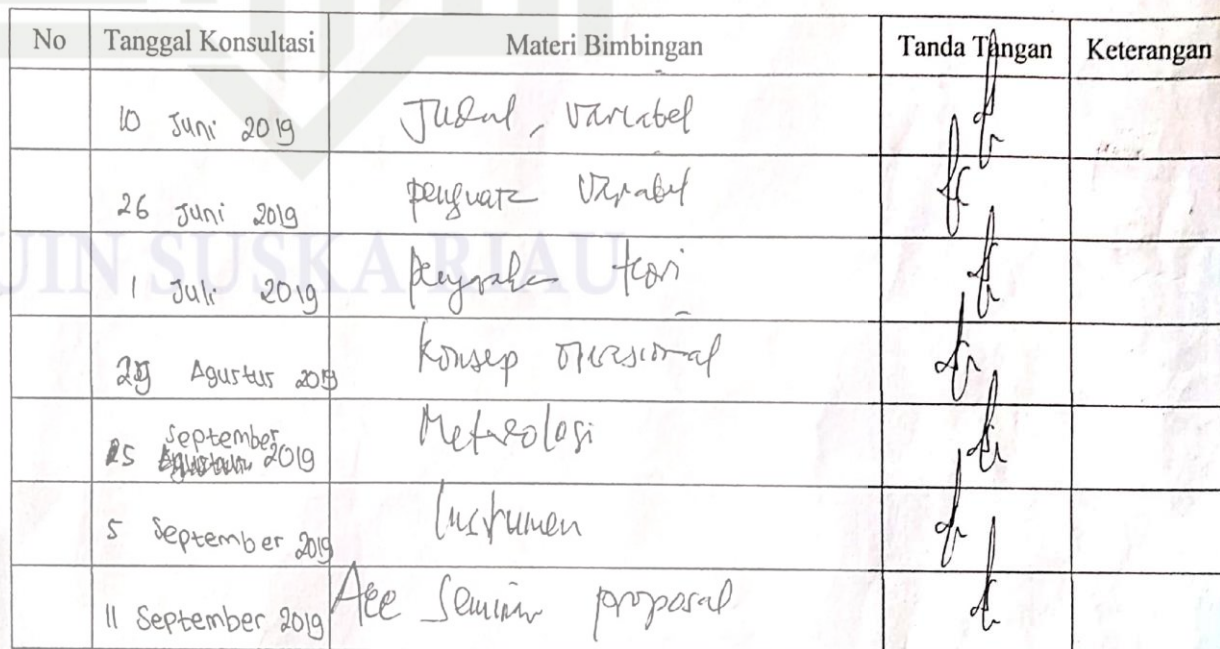 No Tanggal Konsultasi Materi Bimbingan Tanda Tangan Keterangan
10 Juni 2019 Judul, Variabel
26 Juni 2019 penguata Variabel
UIN SUSKA RIAU
1 Juli 2019 teori
Agustus 2019 Konsep operasional
September 2019 Metodologi
5 September 2019 Instrumen
11 September 2019 Acc Seminar proposal